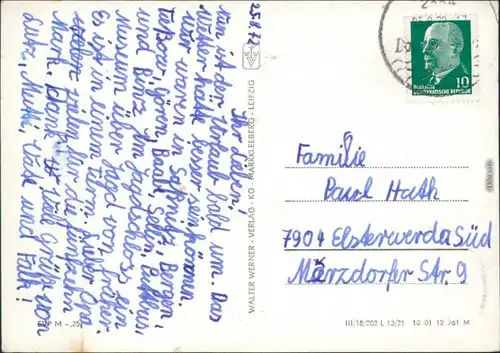 25.8.72
Ihr Lieben!
Nun ist der Urlaub bald um. Das
Wetter hätte besser sein können.
Wir waren in Saßnitz, Bergen,
Göhren, Baabe, Sellin, Putbus
und Binz. Im Jagdschloss ein
Museum über Jagd von früher.
Es ist in einem Turm. Lieber Opa
zahlen für die
Mark. Dank. Viele Grüße von
Eure, Mutti, Vati und Falk!
WALTER WERNER - VERLAG - KG - MARKKLEEBERG - LEIPZIG
EVP M -,25
DEUTSCHE
DEMOKRATISCHE REPUBLIK
10
Familie
Paul Hath
7904 Elsterwerda Süd
Märzdorfer Str. 9
III/18/203 L 13/71 10 01 12 261 M